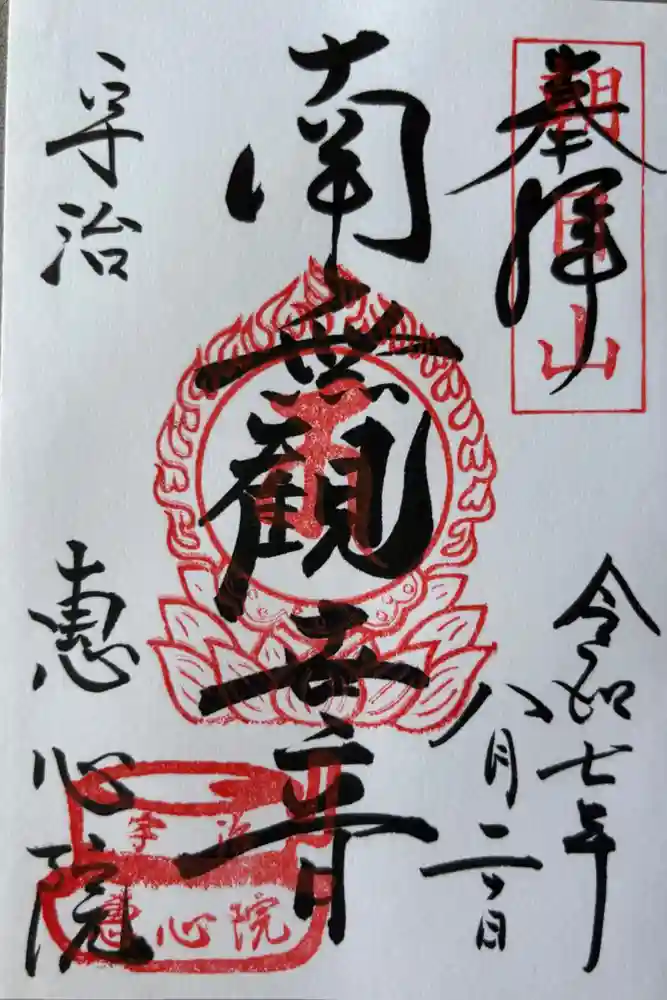 朝日山
奉拝
令和七年
八月二日
南無観世音
宇治
惠心院
宇治
惠心院